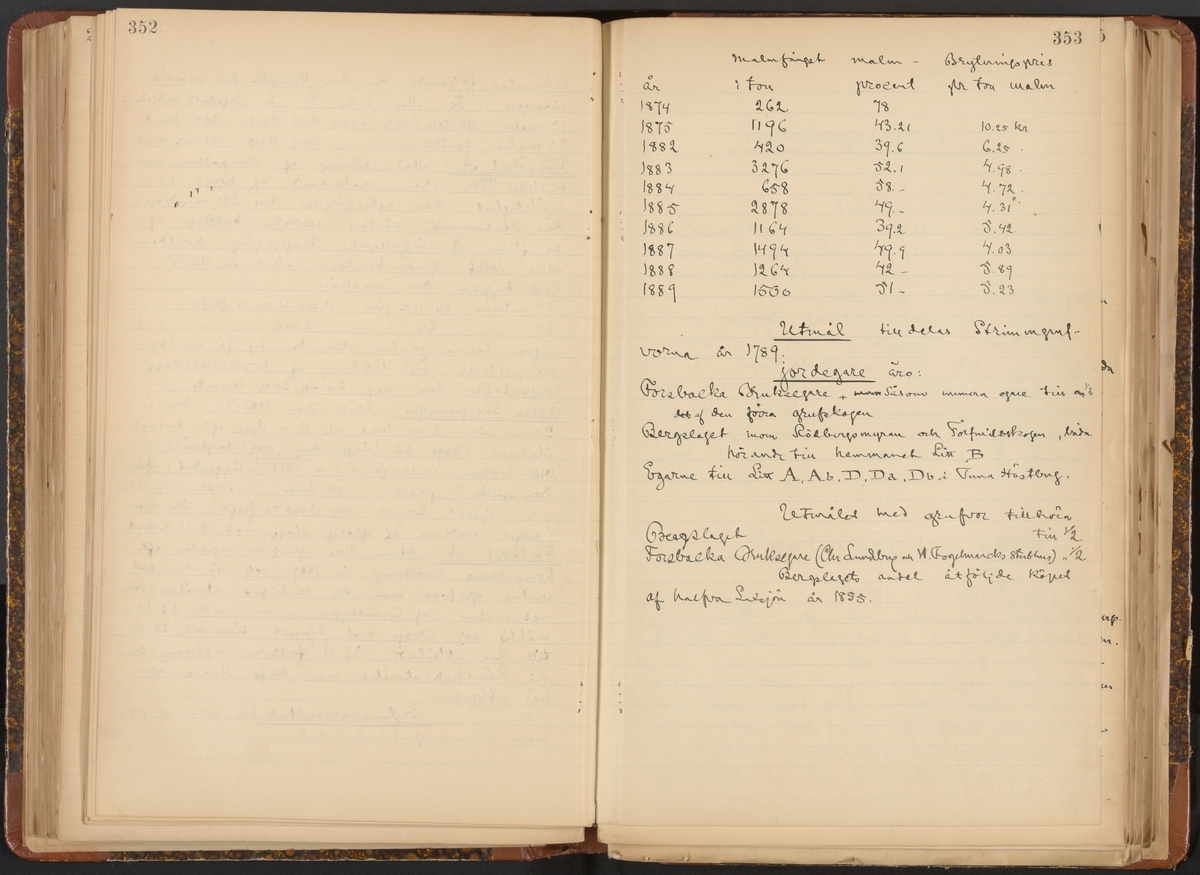 352
353
Malmfånget malm- Brytningspris
år i ton procent pr ton malm
1874 262 78
1875 1196 43.21 10.25 kr
1882 420 39.6 6.25.
1883 3276 52.1 4.98.
1884 658 58.- 4.72.
1885 2878 49.- 4.31
1886 1164 39.2 5.42
1887 1494 49.9 4.03
1888 1264 42 - 5.89
1889 1500 51 - 5.23
Utmål tilldelas Strimmgruf-
vorna år 1789:
jordegare äro:
Forsbacka Bruksegare, såsom numera egare till 1/8
det af den förra grufskogen
Bergslaget inom Rödbergsmyran och Tolfmilsskogen, båda
hörande till hemmanet Litt B
Egarne till Litt A, Ab, D, Da, Db, i Tuna Hästberg.
Utmålet med grufvor tillhöra
Bergslaget till 1/2
Forsbacka Bruksegare (Chr Lundberg och W. Fogelmarcks Sterbhus) " 1/2
Bergslagets andel åtföljde köpet
af halfva Laxsjön år 1855.